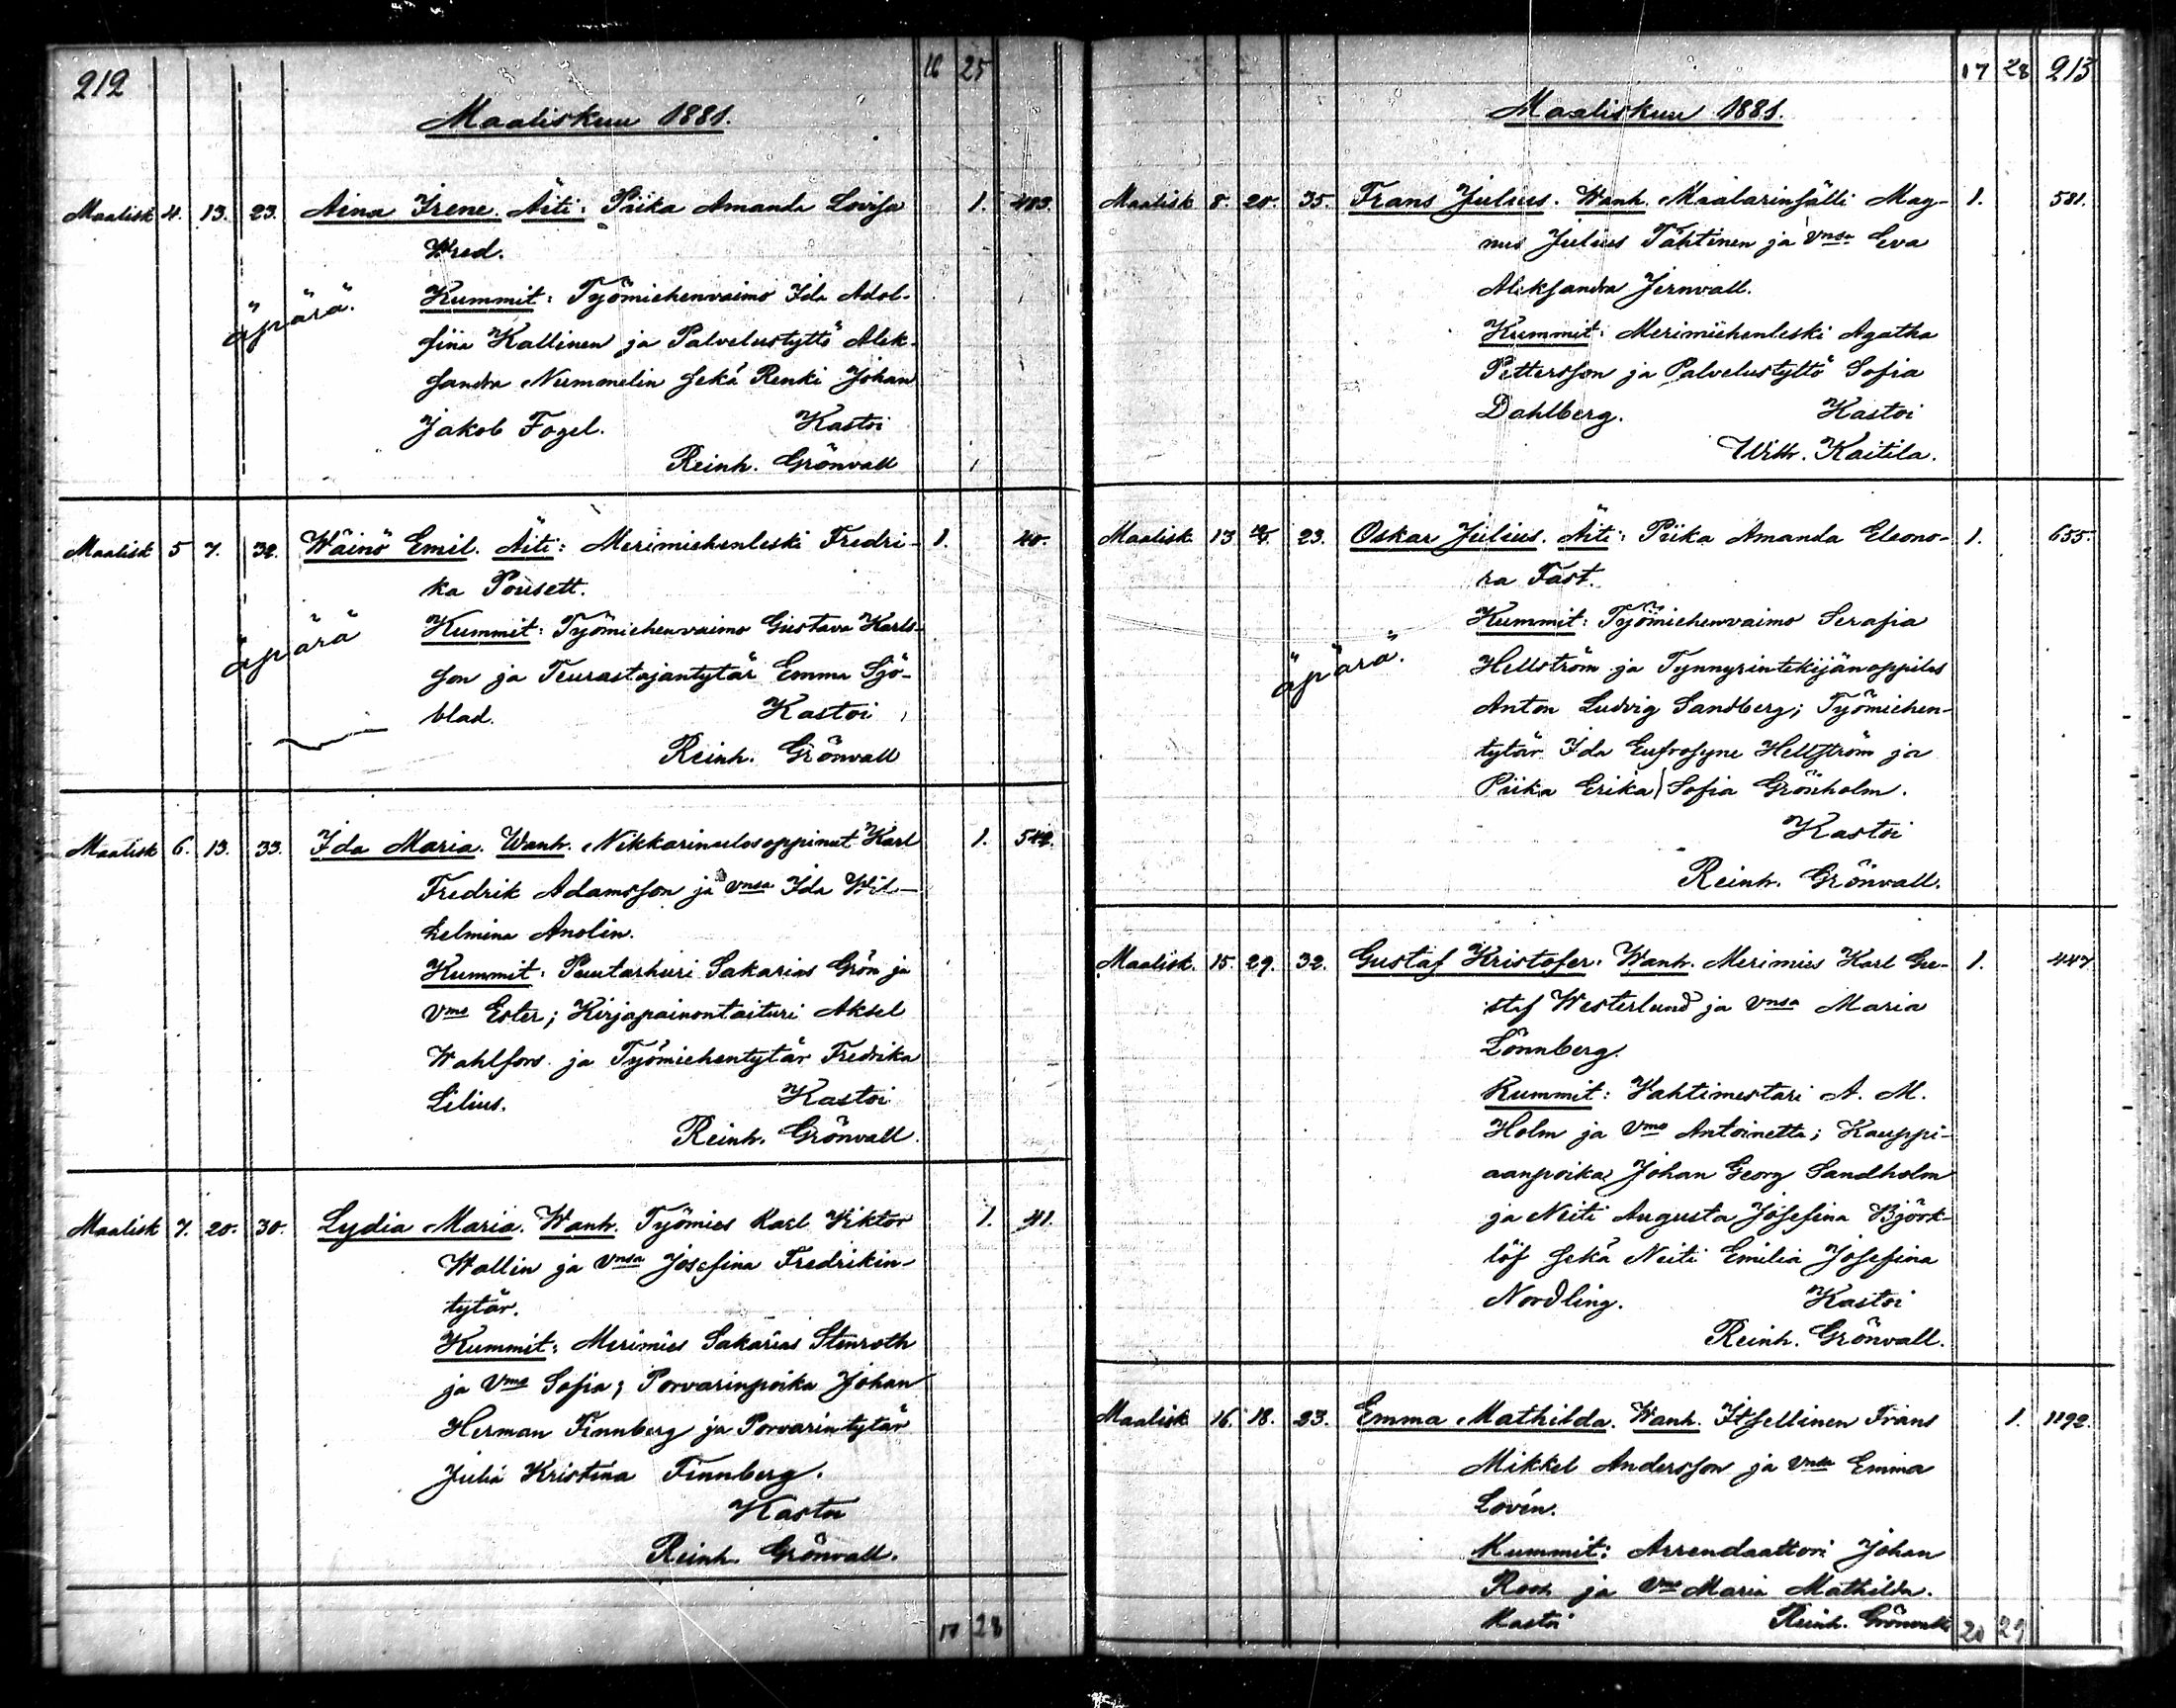 212
16 25
Maaliskuu 1881.
Maalisk 4. 13. 23. Aina Irene. Äiti: Piika Amanda Lovisa 1. 403.
Wred.
äpärä.
Kummit: Työmiehenvaimo Ida Adol-
fiina Kallinen ja Palvelustyttö Alek-
sandra Nummelin sekä Renki Johan
Jakob Fogel. Kastoi
Reinh. Grönvall
Maalisk 5 7. 32. Wäinö Emil. Äiti: Merimiehenleski Fredri- 1. 40.
ka Pousett.
äpärä
Kummit: Työmiehenvaimo Gustava Karls-
son ja Teurastajantytär Emma Sjö-
blad. Kastoi
Reinh. Grönvall
Maalisk 6. 13. 33. Ida Maria. Wanh. Nikkarinulosoppinut Karl 1. 542.
Fredrik Adamsson ja Vnsa Ida Wil-
helmina Anolin.
Kummit: Puutarhuri Sakarias Grön ja
Vmo Ester; Kirjapainontaituri Aksel
Wahlfors ja Työmiehentytär Fredrika
Lilius. Kastoi
Reinh. Grönvall.
Maalisk 7. 20. 30. Lydia Maria. Wanh. Työmies Karl Viktor 1. 41.
Wallin ja Vnsa Josefina Fredrikin-
tytär.
Kummit: Merimies Sakarias Stenroth
ja Vmo Sofia; Porvarinpoika Johan
Herman Finnberg ja Porvarintytär
Julia Kristina Finnberg.
Kastoi
Reinh. Grönvall.
17 28
17 28 213
Maaliskuu 1881.
Maalisk 8. 20. 35. Frans Julius. Wanh. Maalarinsälli Mag- 1. 581.
nus Julius Tähtinen ja Vnsa Eva
Aleksandra Jernvall.
Kummit: Merimiehenleski Agatha
Pettersson ja Palvelustyttö Sofia
Dahlberg. Kastoi
Wilh. Kaitila.
Maalisk. 13 23. Oskar Julius. Äiti: Piika Amanda Eleono- 1. 655.
ra Fast.
äpärä.
Kummit: Työmiehenvaimo Serafia
Hellström ja Tynnyrintekijänoppilas
Anton Ludvig Sandberg; Työmiehen-
tytär Ida Eufrosyne Hellström ja
Piika Erika Sofia Grönholm.
Kastoi
Reinh. Grönvall.
Maalisk. 15. 29. 32. Gustaf Kristofer. Wanh. Merimies Karl Gu- 1. 447.
staf Westerlund ja Vnsa Maria
Lönnberg.
Kummit: Vahtimestari A. M.
Holm ja Vmo Antoinetta; Kauppi-
aanpoika Johan Georg Sandholm
ja Neiti Augusta Josefina Björk-
löf sekä Neiti Emilia Josefina
Nordling. Kastoi
Reinh. Grönvall.
Maalisk 16. 18. 23. Emma Mathilda. Wanh. Itsellinen Frans 1. 1192.
Mikkel Andersson ja Vnsa Emma
Lovén.
Kummit: Arrendaattori Johan
Roos ja Vmo Maria Mathilda.
Kastoi Reinh. Grönvall
20 29